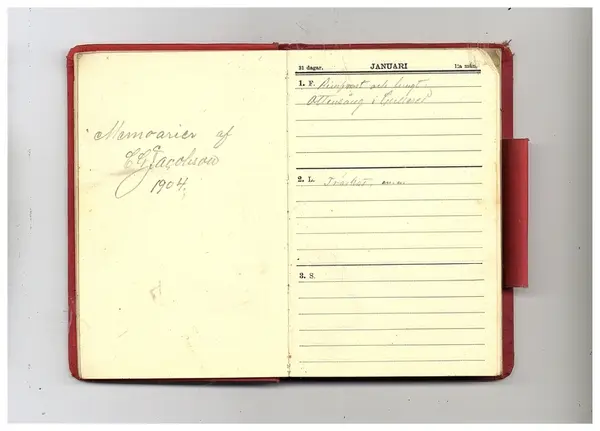 Memoarier af
CG Jacobson
1904.
31 dagar. JANUARI 1:a mån.
1. F. Rimfrost och lugt.
Ottesång i
2. L. Tröskat
3. S.